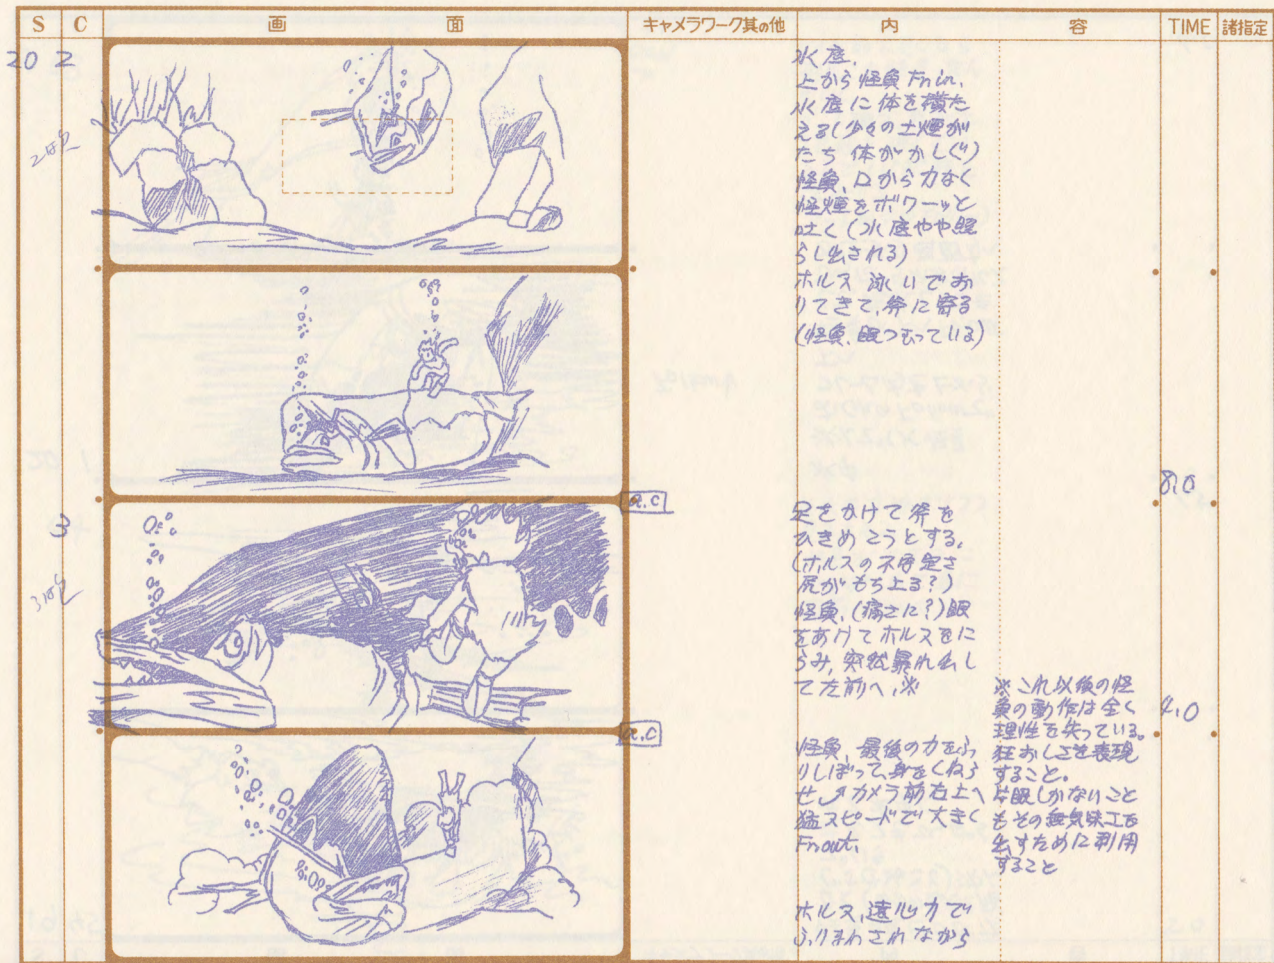 S C 画 面 キャメラワーク其の他 内 容 TIME 諸指定
20 2
水底、
上から怪魚Fr in、
水底に体を横た
える(少々の土煙が
たち 体がかしぐ)
怪魚、口から力なく
怪煙をボワーッと
吐く(水底やや照
らし出される)
ホルス 泳いでお
りてきて、斧に寄る
(怪魚、眼つむっている)
8.0
a.c
3
足をかけて斧を
ひきぬこうとする。
(ホルスの不安定さ
尻がもち上る?)
怪魚、(痛さに?)眼
をあけてホルスをに
らみ、突然暴れ出し
て左前へ、※
※これ以後の怪
魚の動作は全く
理性を失っている。
狂おしさを表現
すること。
片眼しかないこと
もその無気味工を
出すために利用
すること
4.0
a.c
怪魚、最後の力をふ
りしぼって、身をくねら
せ カメラ前右上へ
猛スピードで大きく
Fr out。
ホルス、遠心力で
ふりまわされながら